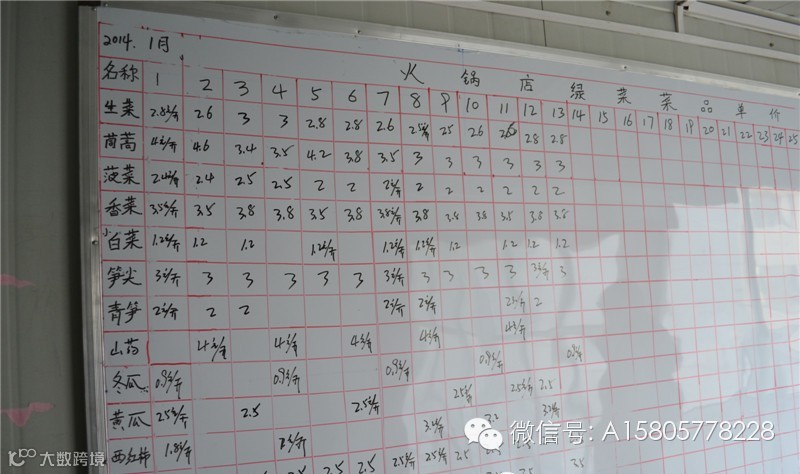 2014. 1月
火锅店绿菜菜品单价
名称 1 2 3 4 5 6 7 8 9 10 11 12 13 14 15 16 17 18 19 20 21 22 23 24 25
生菜 2.8元/斤 2.6 3 3 2.8 2.8 2.6 25 26 2.8 2.8
茼蒿 4元/斤 4.6 3.4 3.5 4.2 3.8 3.5 3 3 3 3 3 3
菠菜 2.4元/斤 2.4 2.5 2.5 2 2 2元/斤 2 2 2 2 2 2
香菜 3.5元/斤 3.5 3.8 3.8 3.5 3.8 3.8元/斤 3.8 3.8 3.8 3.5 3.8 3.8
小白菜 1.2元/斤 1.2 1.2 1.2元/斤 1.2元/斤 1.2元/斤 1.2 1.2 1.2 1.2
笋尖 3元/斤 3 3 3 3 3 3元/斤 3 3 3 3 3元/斤 3
青笋 2元/斤 2 2 2元/斤 2元/斤 2元/斤 2
山药 4元/斤 4元/斤 4元/斤 4元/斤 4元/斤
冬瓜 0.9元/斤 0.9元/斤 0.9元/斤 0.9元/斤 0.9元/斤
黄瓜 2.5元/斤 2.5 2.5元/斤 2.5元/斤 2.5元/斤 2.5
西红柿 1.8元/斤 2元/斤
2.5 2.5 2.5 2.5元/斤 2.5元/斤 2.5
微信号: A15805778228
大数跨境